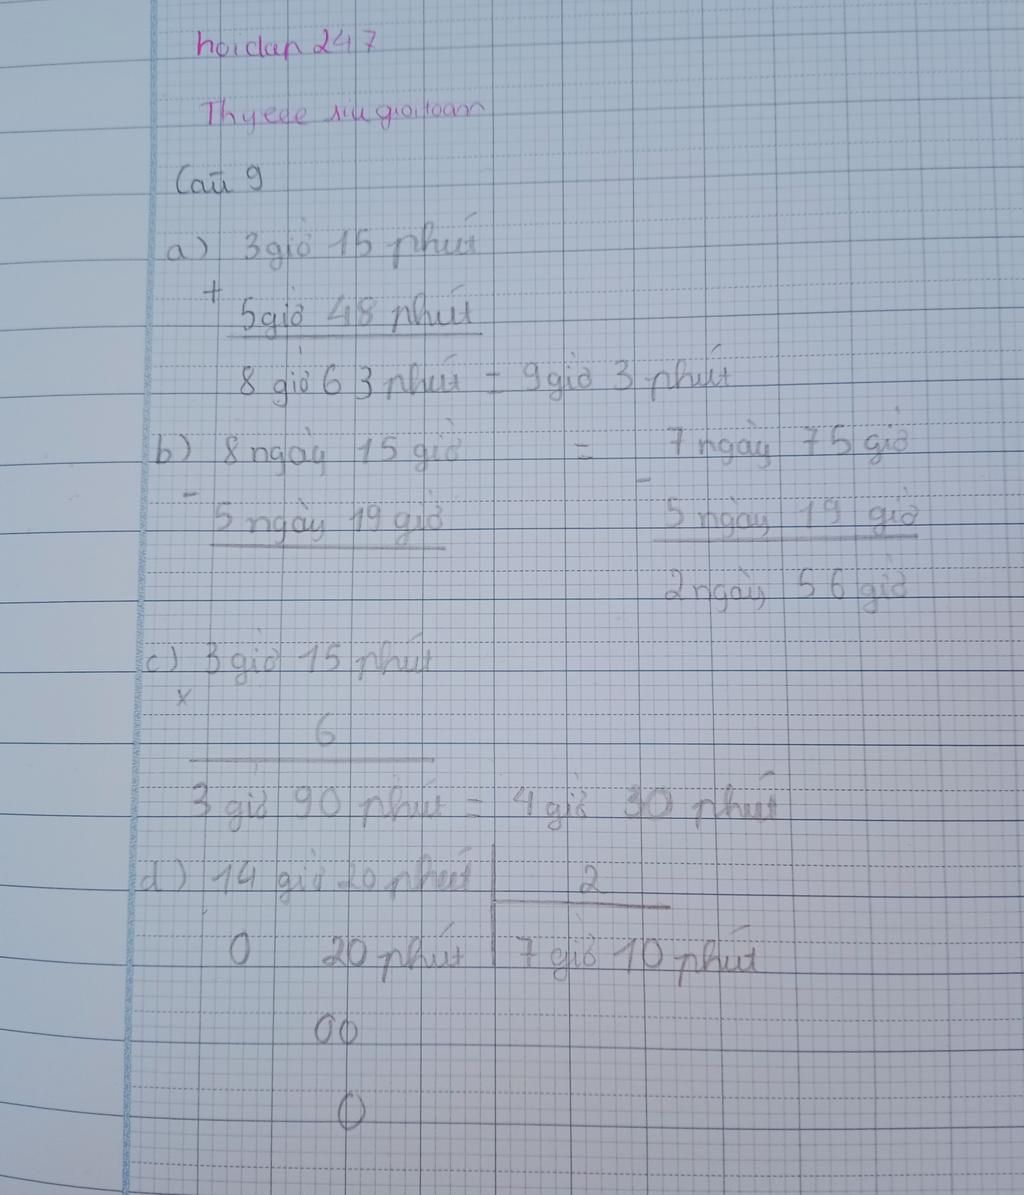 hoidap 247
Thyede siu gioi toan
Câu 9
a) 3 giờ 15 phút
+
5 giờ 48 phút
8 giờ 63 phút = 9 giờ 3 phút
b) 8 ngày 15 giờ = 7 ngày 75 giờ
- -
5 ngày 19 giờ 5 ngày 19 giờ
2 ngày 56 giờ
c) 3 giờ 15 phút
x
6
3 giờ 90 phút = 4 giờ 30 phút
d) 14 giờ 20 phút 2
0 20 phút 7 giờ 10 phút
00
0